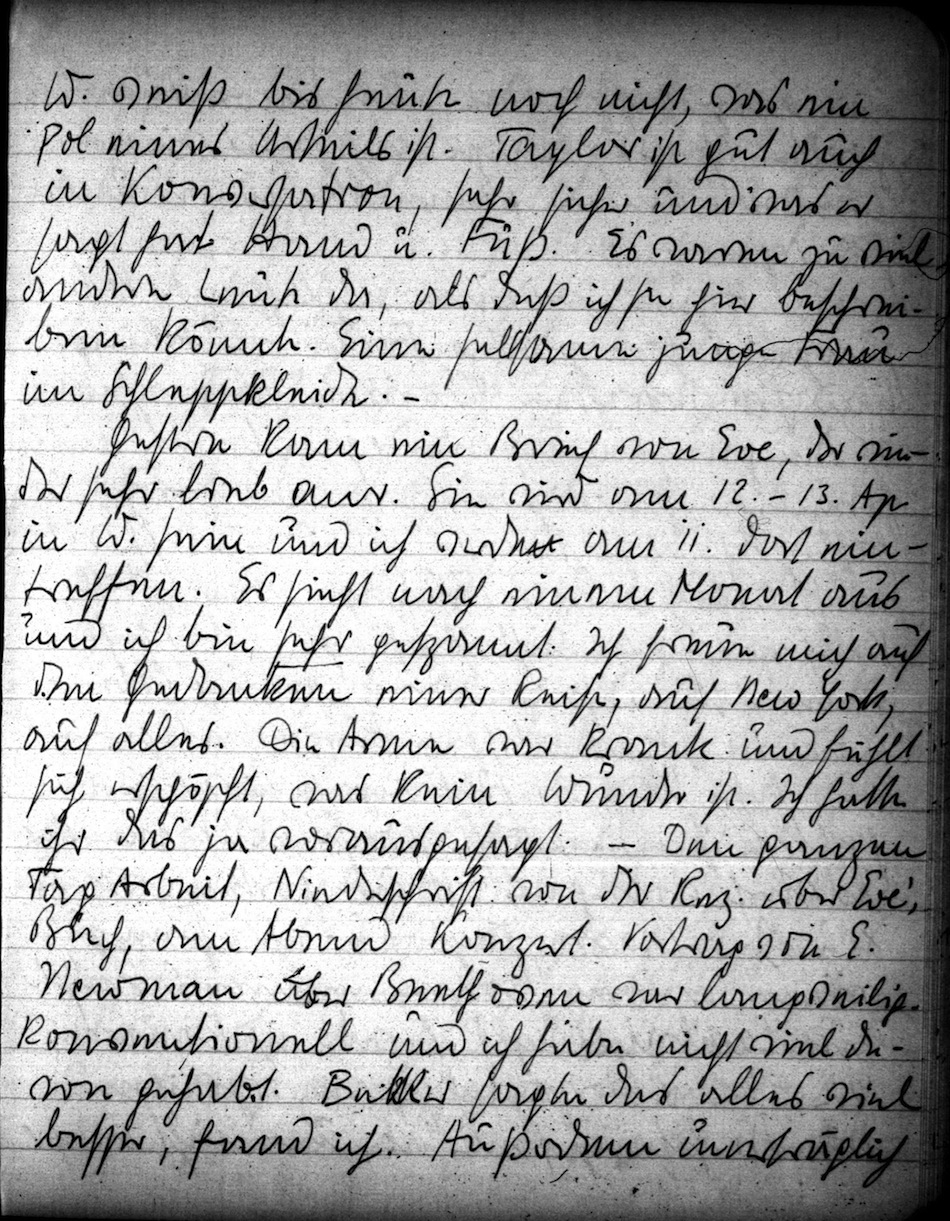 W. weiß bis heute noch nicht, was ein
Pol eines Urteils ist. Taylor ist gut auch
in Konversation, sehr sicher und was er
sagt hat Hand u. Fuß. Es waren zu viel
andere Leute da, als daß ich sie hier beschrei-
ben könnte. Eine seltsame junge Frau
im Schleppkleide. –
Gestern kam ein Brief von Eve, der wie-
der sehr lieb war. Sie wird am 12. – 13. Ap
in W. sein und ich werde am 11. dort ein-
treffen. Es sieht nach einem Monat aus
und ich bin sehr gespannt. Ich freue mich auf
den Gedanken einer Reise, auf New York,
auf alles. Die Arme war krank und fühlt
sich erschöpft, was kein Wunder ist. Ich hatte
ihr das ja vorausgesagt. – Den ganzen
Tag Arbeit, Niederschrift von der Rez. über Eve's
Buch, am Abend Konzert. Vortrag von E.
Newman über Beethoven war langweilig-
konventionell und ich habe nicht viel da-
von gehabt. Bekker sagte das alles viel
besser, fand ich. Außerdem unerträglich